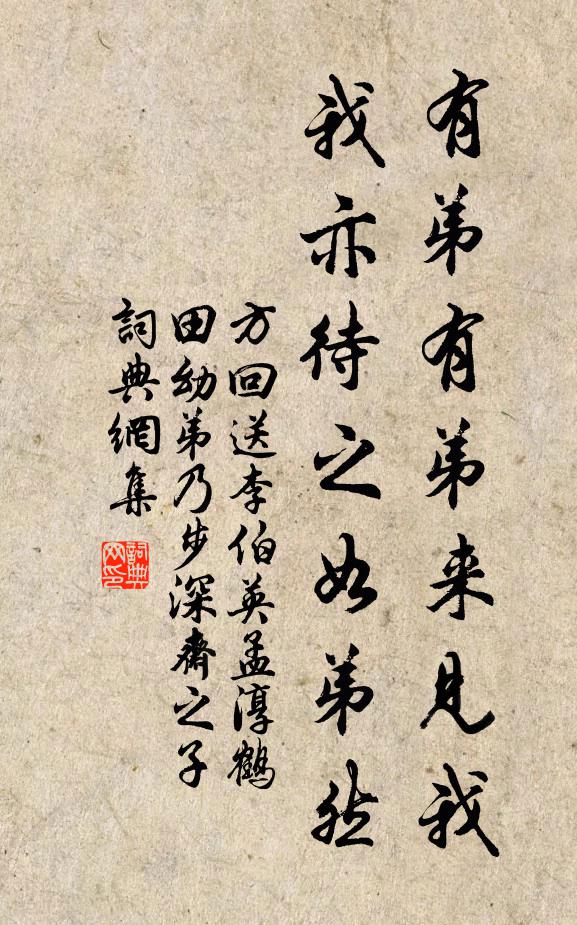 有弟有弟来見我
我亦待之如弟然
方回送李伯英孟淳鶴
田幼弟乃步深齋之子
詞典網集
詞典网印